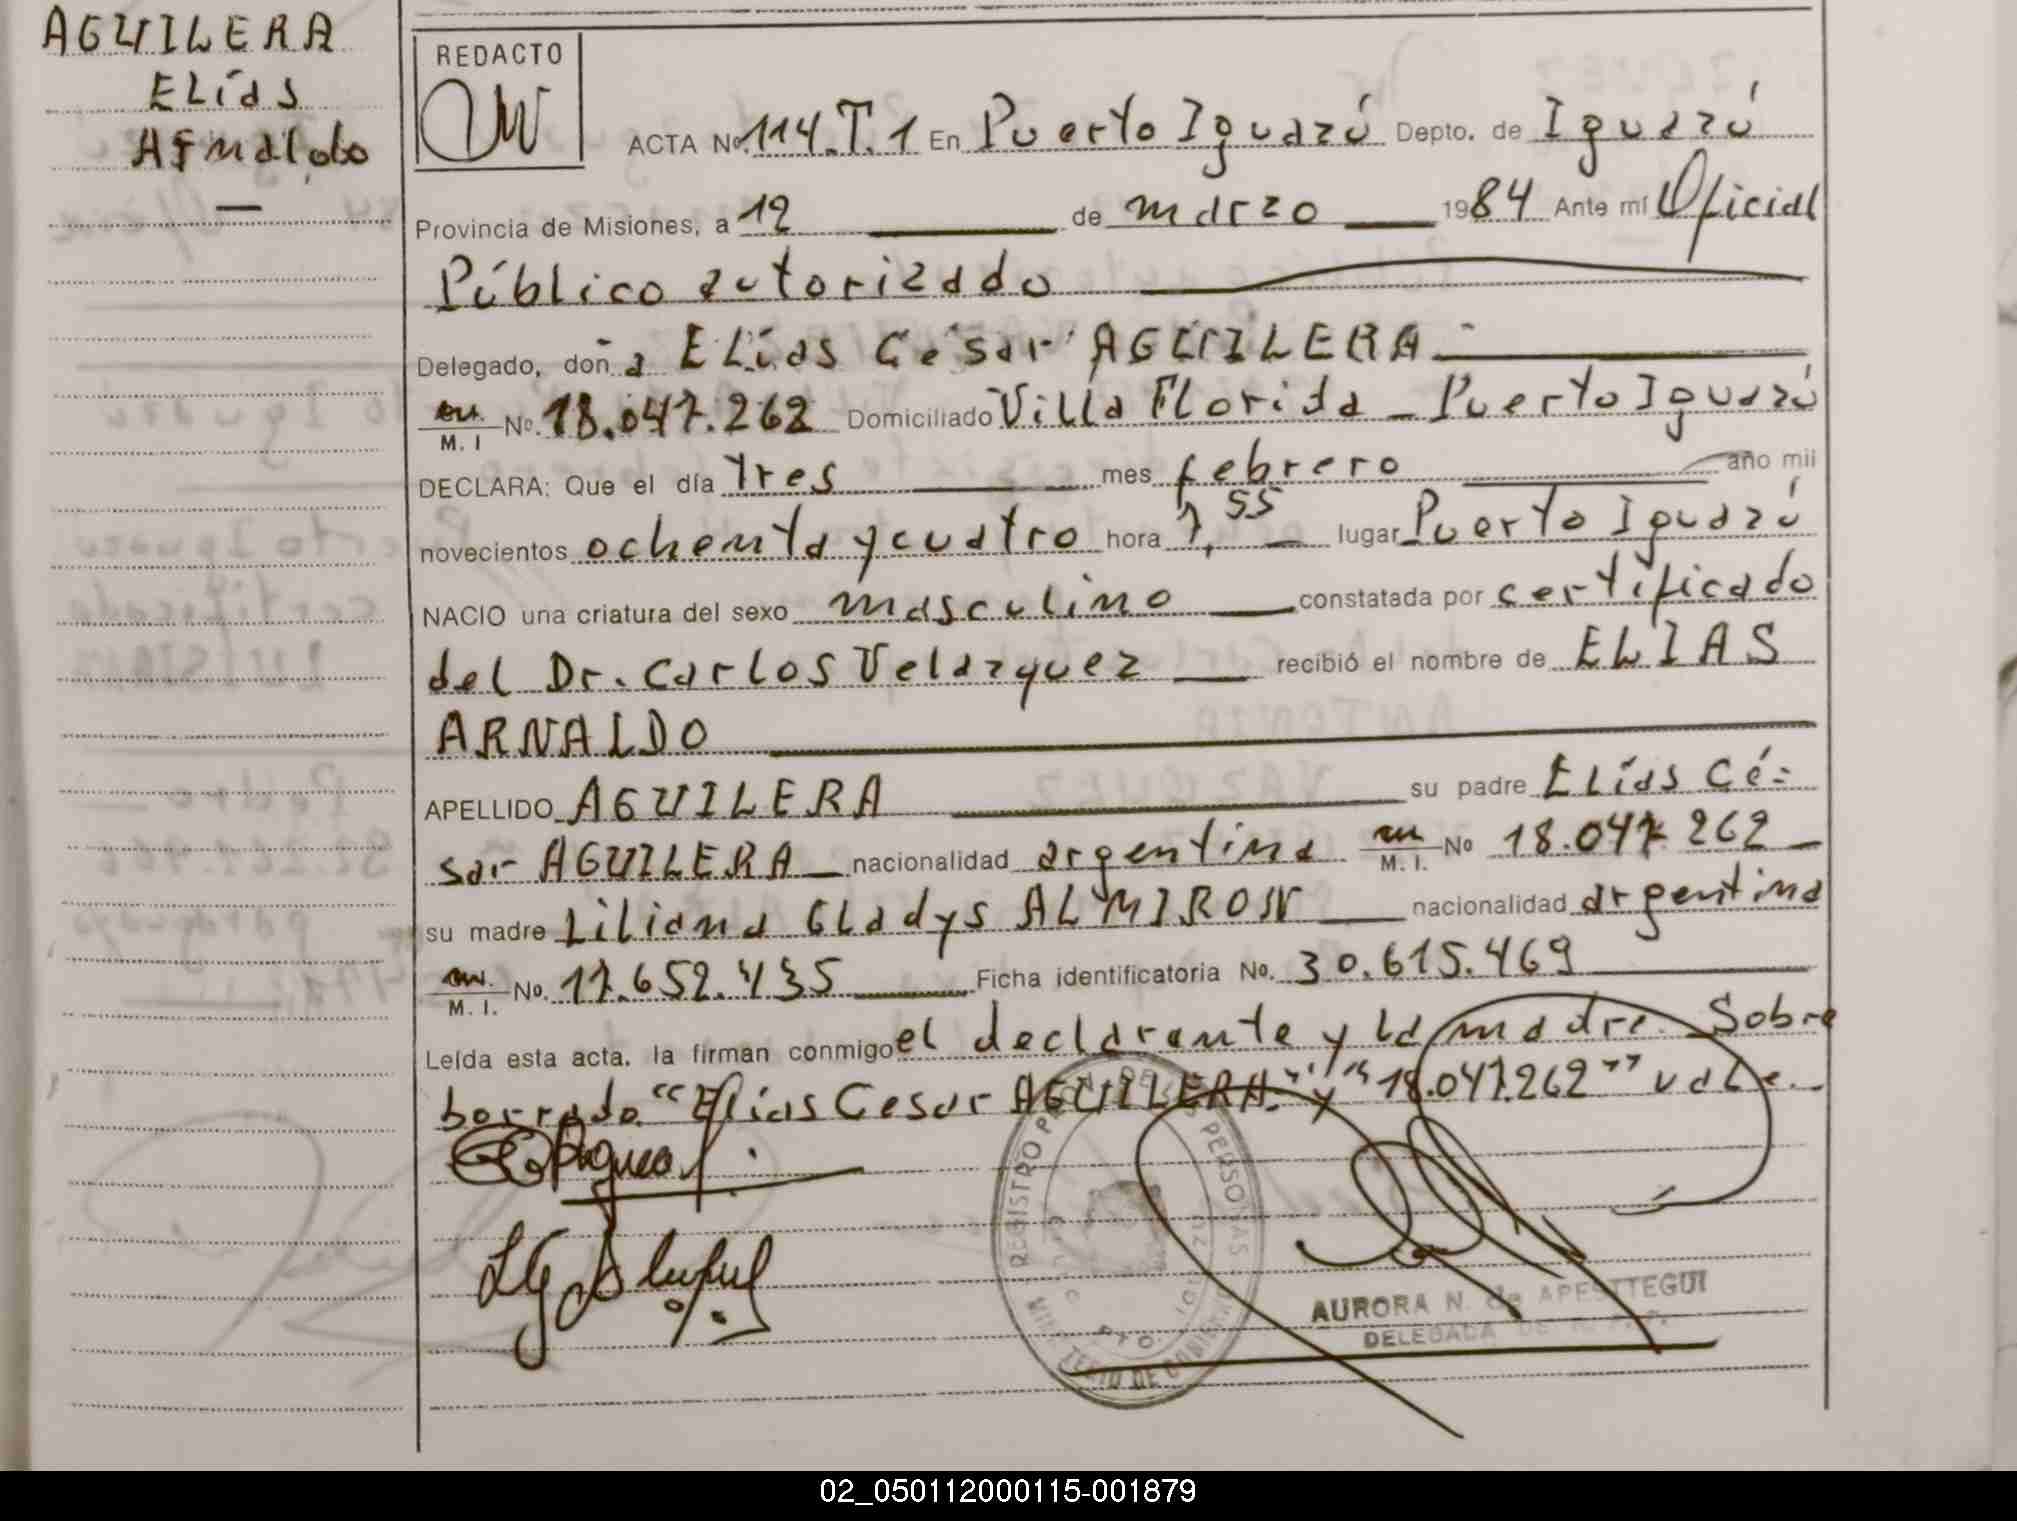 AGUILERA
Elías
Arnaldo
REDACTO
ACTA No. 114.T.1 En Puerto Iguazú Depto. de Iguazú
Provincia de Misiones, a 12 de marzo 1984 Ante mí Oficial
Público autorizado
Delegado, doña Elías César AGUILERA
M. I No. 18.047.262 Domiciliado Villa Florida - Puerto Iguazú
DECLARA: Que el día tres mes febrero año mil
novecientos ochenta y cuatro hora 7,55 lugar Puerto Iguazú
NACIO una criatura del sexo masculino constatada por certificado
del Dr. Carlos Velazquez recibió el nombre de ELIAS
ARNALDO
APELLIDO AGUILERA su padre Elías Cé=
sar AGUILERA nacionalidad argentina M. I. No 18.047.262
su madre Liliana Gladys ALMIRON nacionalidad argentina
M. I. No. 17.652.435 Ficha identificatoria No. 30.615.469
Leída esta acta, la firman conmigo el declarante y la madre. Sobre
borrado "Elías Cesar AGUILERA" y "18.047.262" vale.
REGISTRO DE LAS PERSONAS
MINISTERIO DE GOBIERNO
AURORA N. de APESTTEGUI
DELEGADA DE
02_050112000115-001879